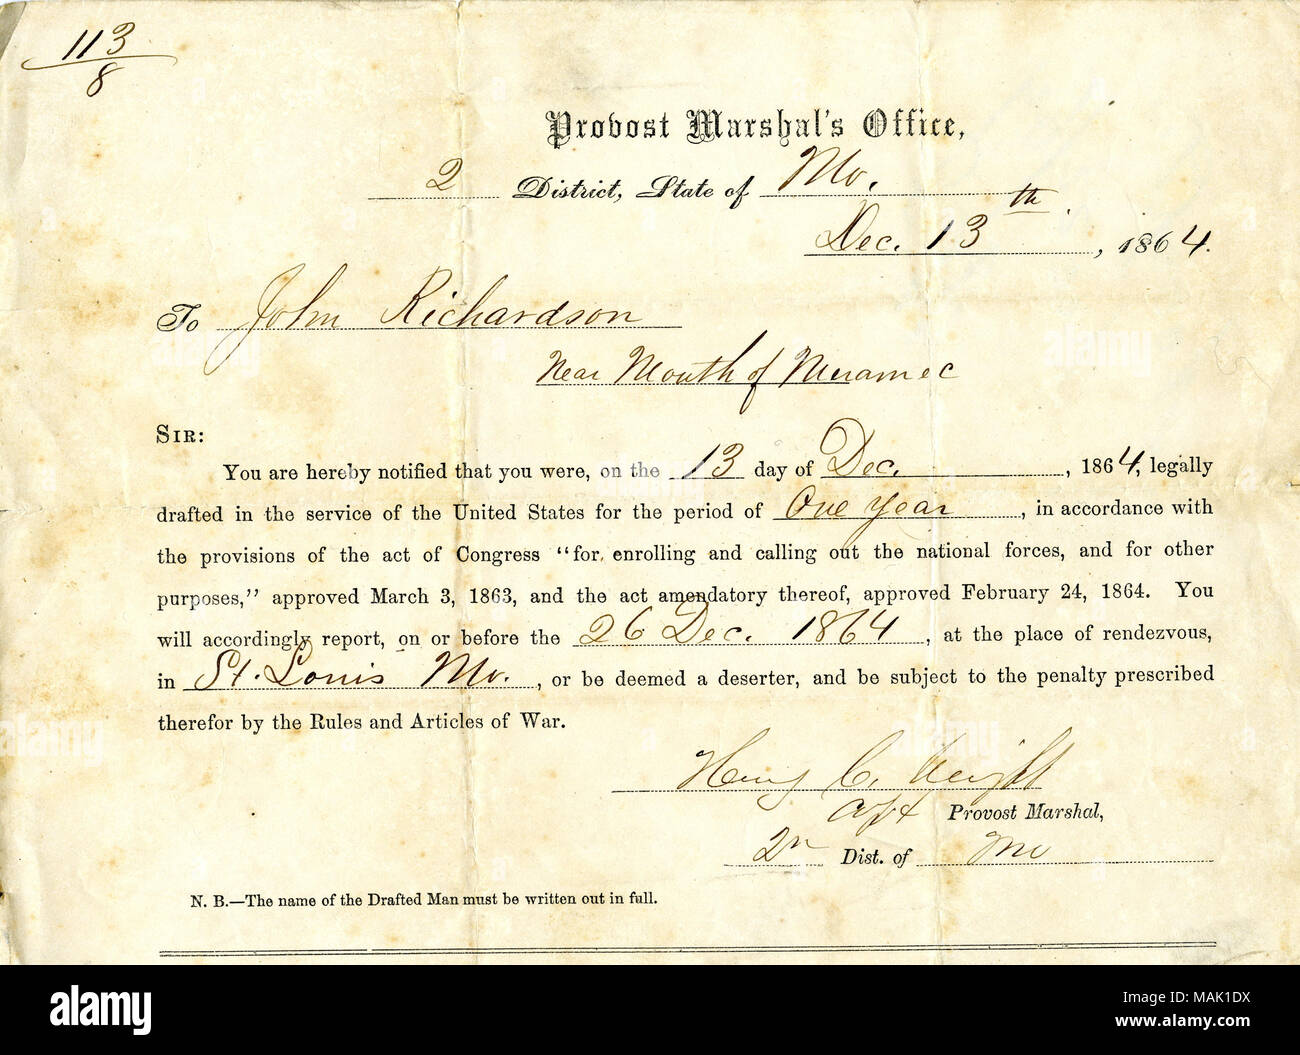 113
8
Provost Marshal's Office,
2 District, State of Mo.
Dec. 13th, 1864.
To John Richardson
Near Mouth of Meramec
SIR:
You are hereby notified that you were, on the 13 day of Dec., 1864, legally
drafted in the service of the United States for the period of One Year, in accordance with
the provisions of the act of Congress “for enrolling and calling out the national forces, and for other
purposes,” approved March 3, 1863, and the act amendatory thereof, approved February 24, 1864. You
will accordingly report, on or before the 26 Dec. 1864, at the place of rendezvous,
in St. Louis Mo., or be deemed a deserter, and be subject to the penalty prescribed
therefor by the Rules and Articles of War.
Henry C.
Capt Provost Marshal,
Dist. of Mo
N. B.—The name of the Drafted Man must be written out in full.
alamy
Image ID: MAK1DX
www.alamy.com